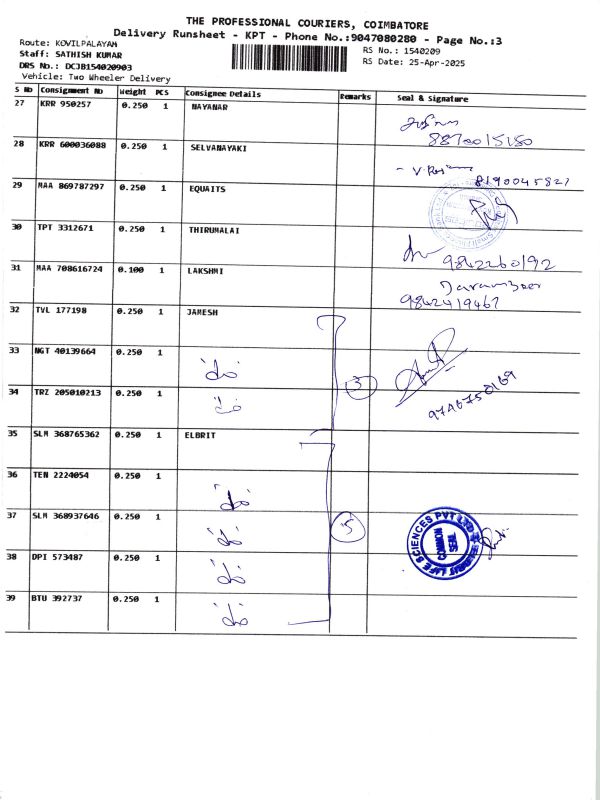 THE PROFESSIONAL COURIERS, COIMBATORE
Delivery Runsheet - KPT - Phone No.:9047080280 - Page No.:3
Route: KOVILPALAYAM
RS No.: 1540209
Staff: SATHISH KUMAR
RS Date: 25-Apr-2025
DRS No.: DCJB154020903
Vehicle: Two Wheeler Delivery
S No Consignment No Weight PCS Consignee Details Remarks Seal & Signature
27 KRR 950257 0.250 1 NAYANAR
28 KRR 600036088 0.250 1 SELVANAYAKI
8190045827
29 MAA 869787297 0.250 1 EQUAITS
30 TPT 3312671 0.250 1 THIRUMALAI
9842260192
31 MAA 708616724 0.100 1 LAKSHMI
9842419467
32 TVL 177198 0.250 1 JAMESH
33 NGT 40139664 0.250 1
3
34 TRZ 205010213 0.250 1
9746750169
35 SLM 368765362 0.250 1 ELBRIT
36 TEN 2224054 0.250 1
37 SLM 368937646 0.250 1
5
LIFE SCIENCES PVT LTD
COMMON SEAL
38 DPI 573487 0.250 1
39 BTU 392737 0.250 1